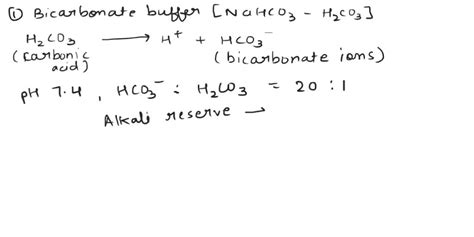 ① Bicarbonate buffer [NaHCO3 - H2CO3]
H2CO3 ⟶ H+ + HCO3-
(carbonic acid) (bicarbonate ions)
pH 7.4, HCO3- : H2CO3 = 20 : 1
Alkali reserve →